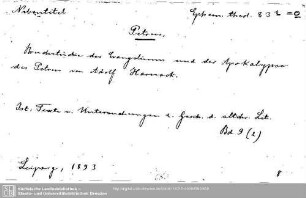 Nebentitel
Ephem. theol. 832 = o
Petrus.
Bruchstücke des Evangeliums und der Apokalypse
des Petrus von Adolf Harnack.
Aus: Texte u. Untersuchungen z. Gesch. d. altchr. Lit.
Bd 9 (2)
Leipzig, 1893
8
Sächsische Landesbibliothek -
Staats- und Universitätsbibliothek Dresden